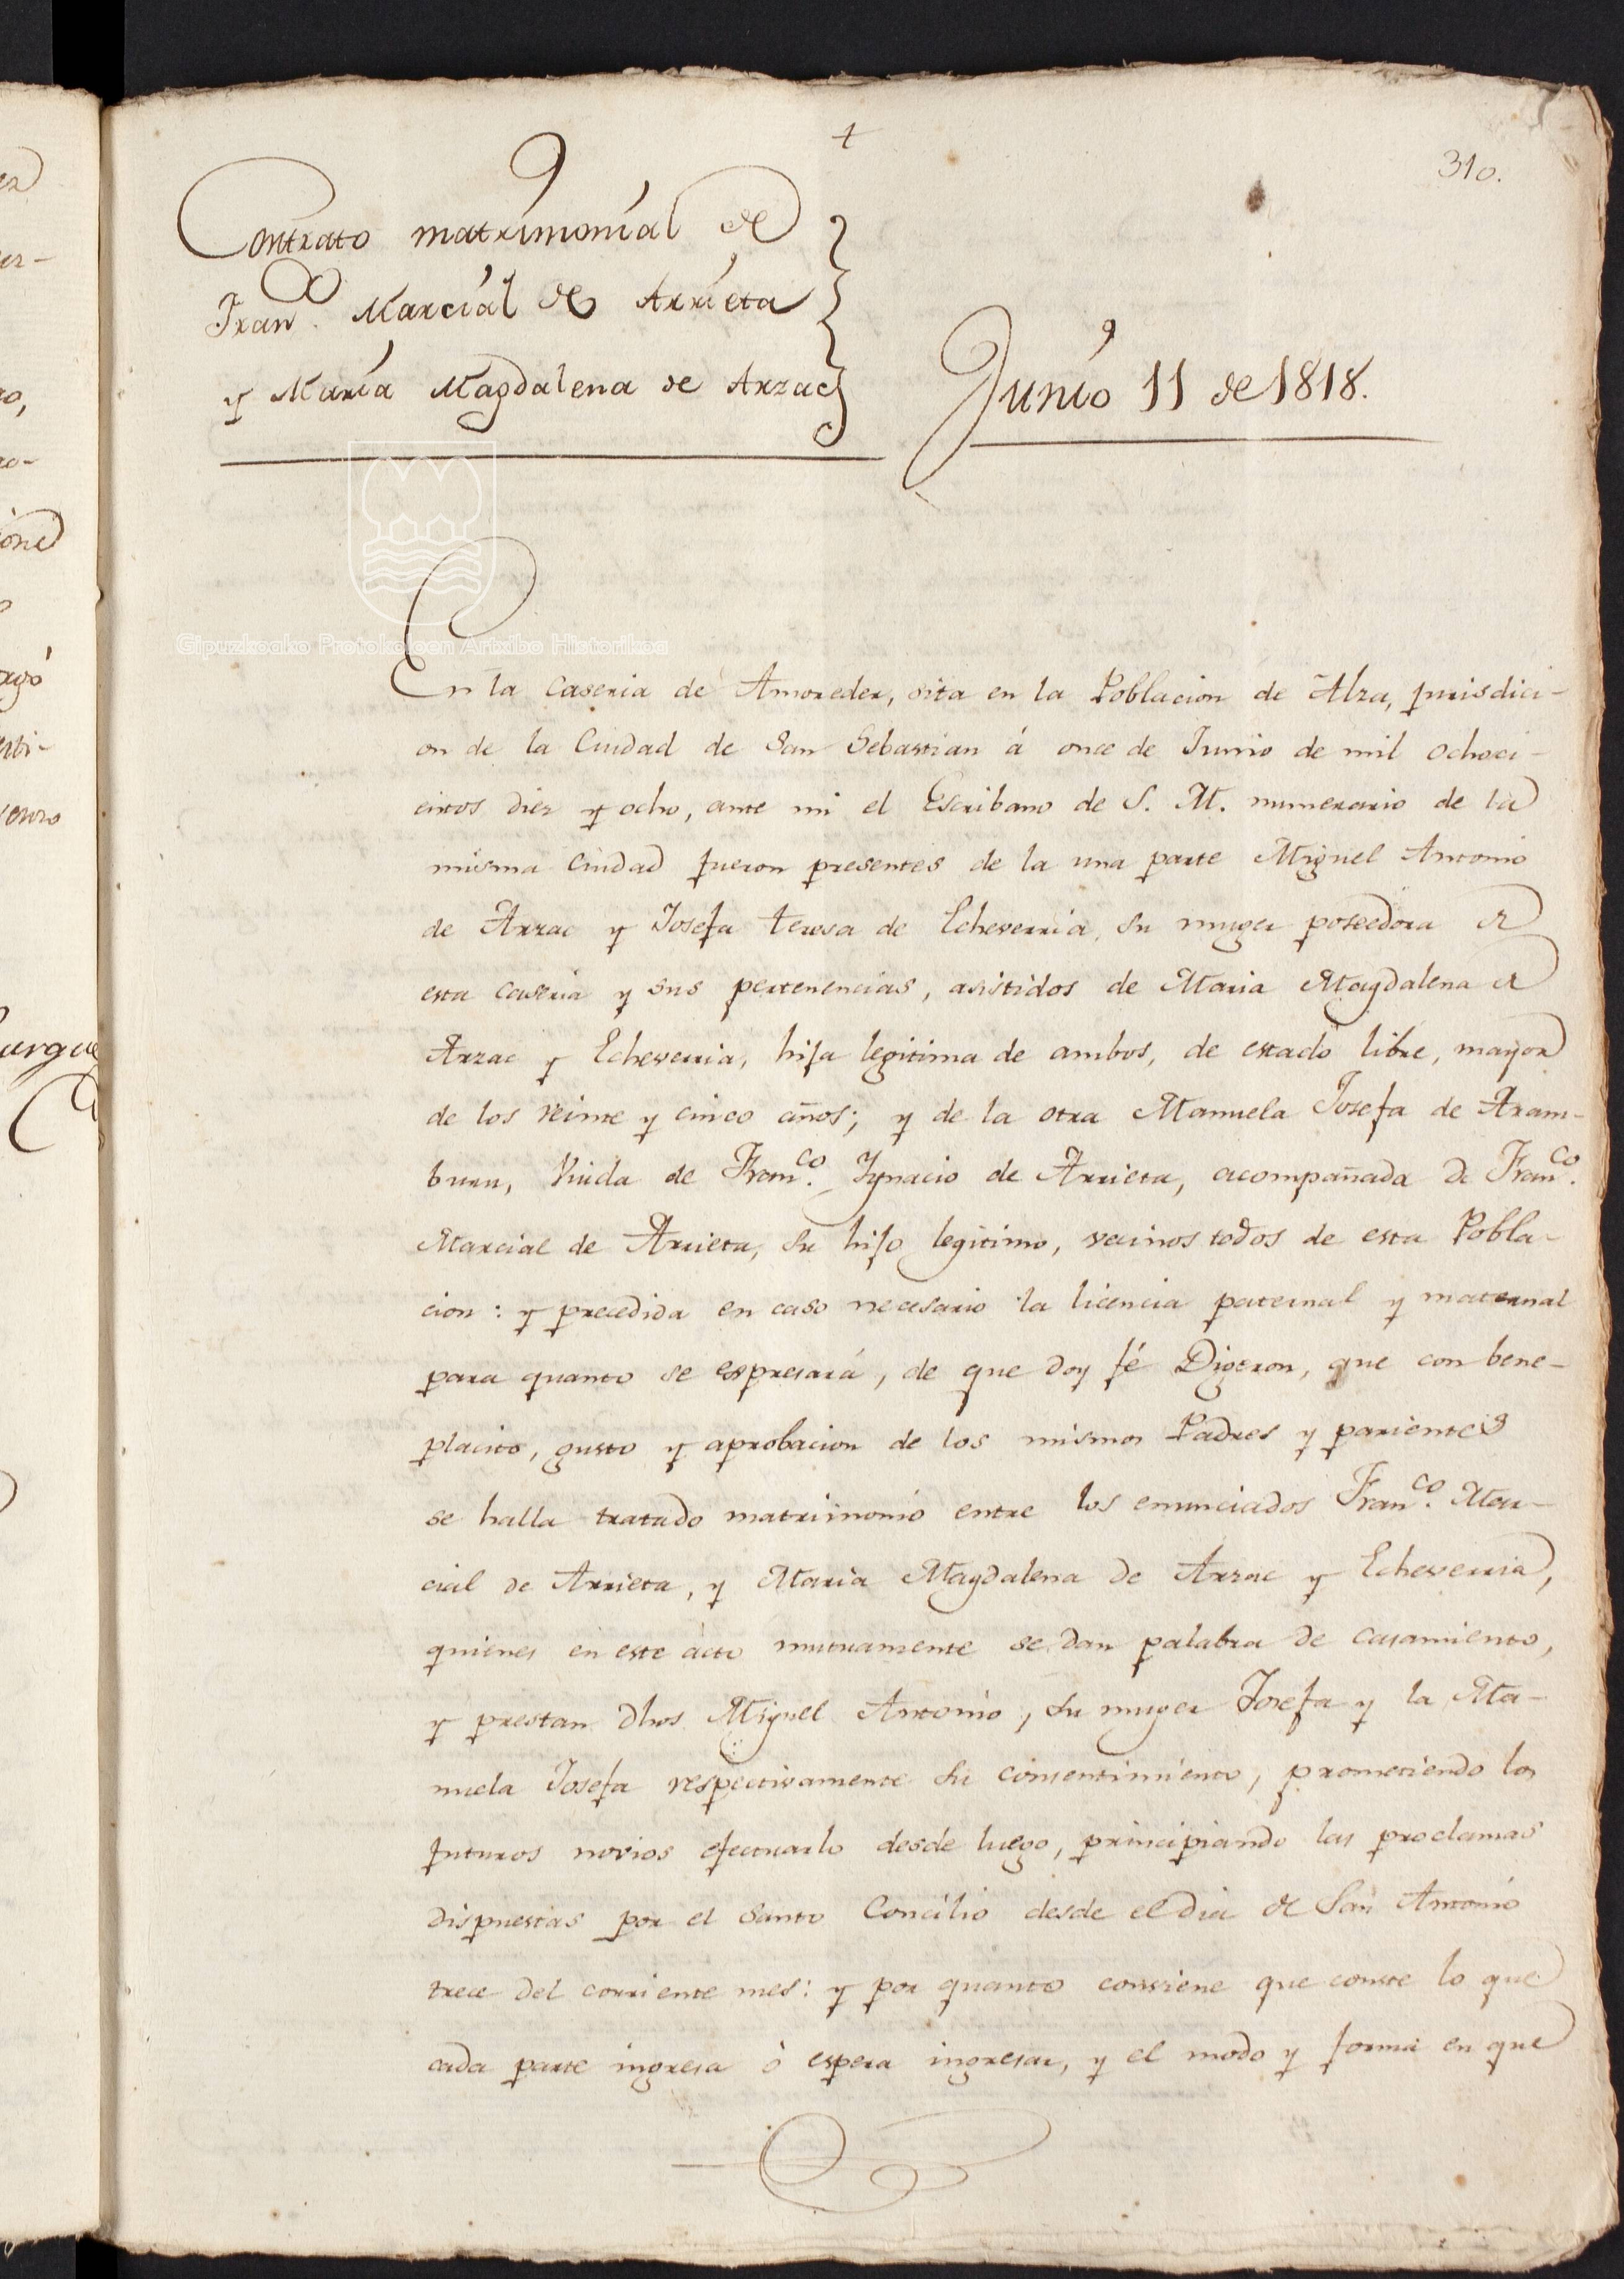 +
310.
Contrato matrimonial de
Franco. Marcial de Arrieta
y María Magdalena de Arzac
Junio 11 de 1818.
Gipuzkoako Protokoloen Artxibo Historikoa
En la caseria de Amoreder, sita en la Poblacion de Alza, jurisdici-
on de la Ciudad de San Sebastian á once de Junio de mil ochoci-
entos diez y ocho, ante mi el Escribano de S. M. numerario de la
misma Ciudad fueron presentes de la una parte Miguel Antonio
de Arzac y Josefa Teresa de Echeverria, su muger poseedora de
esta caseria y sus pertenencias, asistidos de Maria Magdalena de
Arzac y Echeverria, hija legitima de ambos, de estado libre, mayor
de los veinte y cinco años; y de la otra Manuela Josefa de Aram-
buru, Viuda de Franco. Ygnacio de Arrieta, acompañada de Franco.
Marcial de Arrieta, su hijo legitimo, vecinos todos de esta Pobla-
cion: y precedida en caso necesario la licencia paternal y maternal
para quanto se espresará, de que doy fé Digeron, que con bene-
placito, gusto y aprobacion de los mismos Padres y parientes
se halla tratado matrimonio entre los enunciados Franco. Mar-
cial de Arrieta, y Maria Magdalena de Arzac y Echeverria,
quienes en este acto mutuamente se dan palabra de casamiento,
y prestan dhos Miguel Antonio, su muger Josefa y la Ma-
nuela Josefa respectivamente su consentimiento, prometiendo los
futuros novios efectuarlo desde luego, principiando las proclamas
dispuestas por el Santo Concilio desde el dia de San Antonio
trece del corriente mes: y por quanto conviene que conste lo que
cada parte ingresa ó espera ingresar, y el modo y forma en que